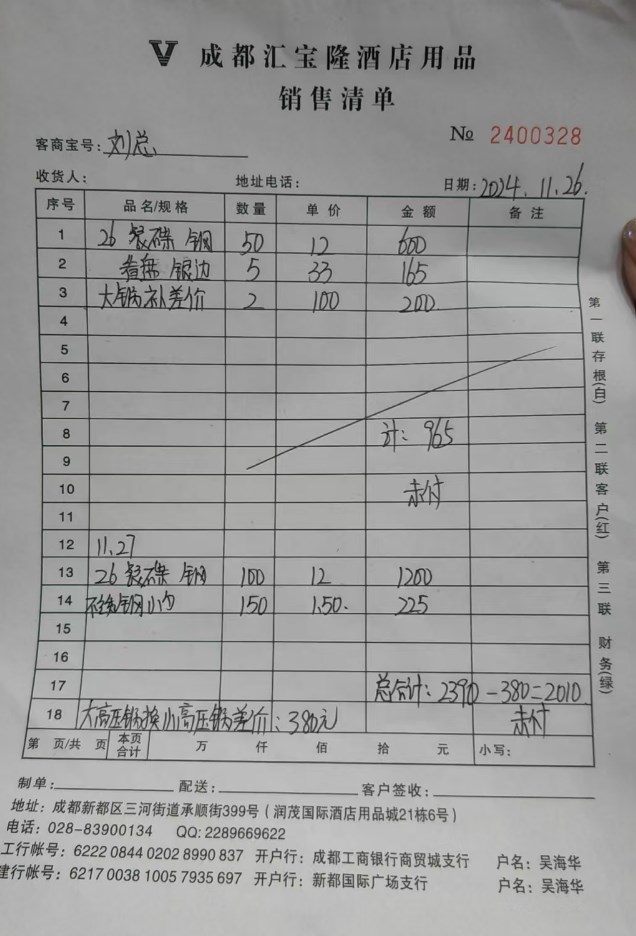 成都汇宝隆酒店用品
销售清单
№ 2400328
客商宝号：刘总
收货人： 地址电话： 日期：2024.11.26.
序号 品名/规格 数量 单价 金额 备注
1 26 餐碟 钢 50 12 600
2 银边 5 33 165
3 大锅补差价 2 100 200
4
5
6
7
8 计：965
9
10 未付
11
12 11.27
13 26 餐碟 钢 100 12 1200
14 不锈钢小勺 150 1.50. 225
15
16
17 总合计：2390-380=2010
18 大高压锅换小高压锅差价：380元 未付
第 页/共 页 本页合计 万 仟 佰 拾 元 小写：
第一联存根(白) 第二联客户(红) 第三联 财务(绿)
制单： 配送： 客户签收：
地址：成都新都区三河街道承顺街399号（润茂国际酒店用品城21栋6号）
电话：028-83900134 QQ: 2289669622
工行帐号：6222 0844 0202 8990 837 开户行：成都工商银行商贸城支行 户名：吴海华
建行帐号：6217 0038 1005 7935 697 开户行：新都国际广场支行 户名：吴海华